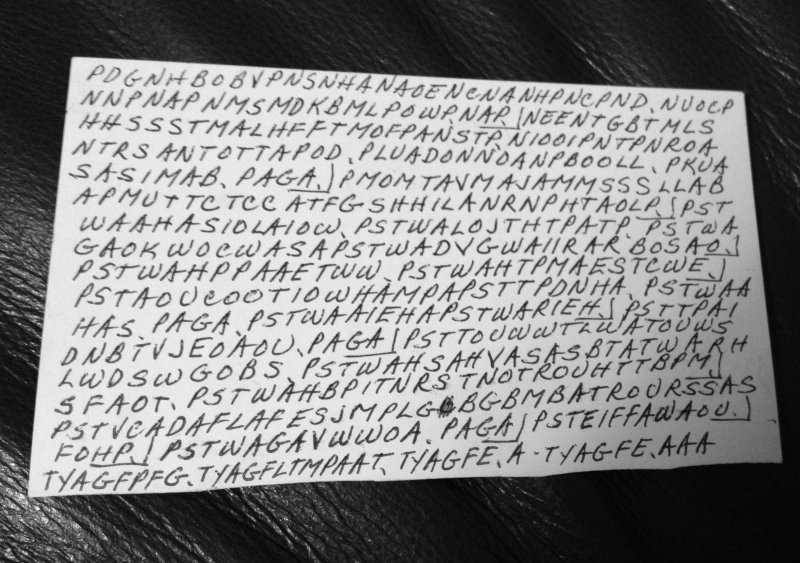 PDGNHBOBVPNSNHANAOENCNANHPNCPND. NUOCP
NNPNAPNMSMDKBMLPOWP.NAP.|NEENTGBTMLS
HHSSSTMALHFFTMOFPANSTP.NIOOIPNTPNROA
NTRSANTOTTAPOD.PLUADONNOANPBOOLL.PKUA
SASIMAB.PAGA.|PMOMTAVMAJAMMSSSLLAB
APMUTTCTCCATFGSHHILANRNPHTAOLP.|PST
WAAHASIOLAIOW.PSTWALOJTHTPATP.PSTWA
GAOKWOCWASAPSTWADVGWAIIRAR.BOSAO.|
PSTWAHPPAAETWW.PSTWAHTPMAESTCWE.|
PSTAOUCOOTIOWHAMPAPSTTPDNHA.PSTWAA
HAS.PAGA.PSTWAAIEHAPSTWARIEH.|PSTTPAI
DNBTVJEOAOU.PAGA|PSTTOUWWTLWATOUWS
LWDSWGOBS.PSTWAHSAHVASASBTATWARH
SFAOT.PSTWAHBPITNRS.TNOTROUHTTBPM.|
PSTVCADAFLAFESJMPLGBGBMBATROURSSAS
FOHP.|PSTWAGAVWWOA.PAGA|PSTEIFFAWAOU.|
TYAGFPFG.TYAGFLTMPAAT.TYAGFE.A-TYAGFE.AAA